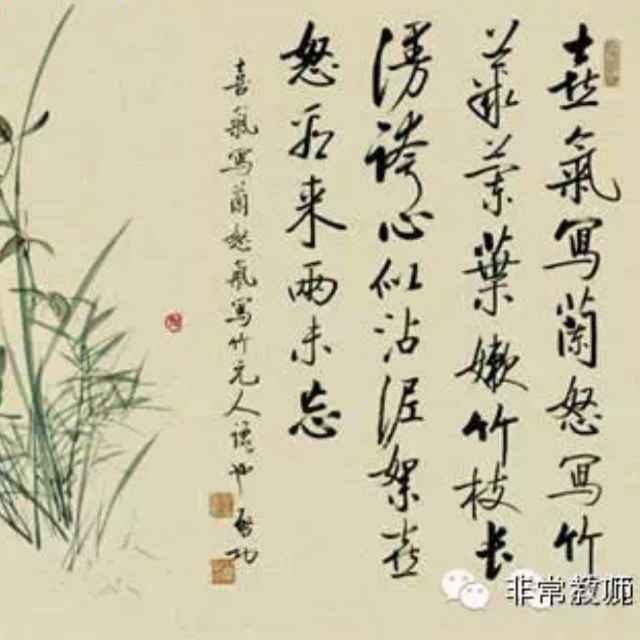 喜氣寫蘭怒寫竹
葉嫩竹枝长
漫誇心似沾泥絮喜
怒看来兩未忘
喜氣寫蘭怒氣寫竹元人語也 啟功
非常教师